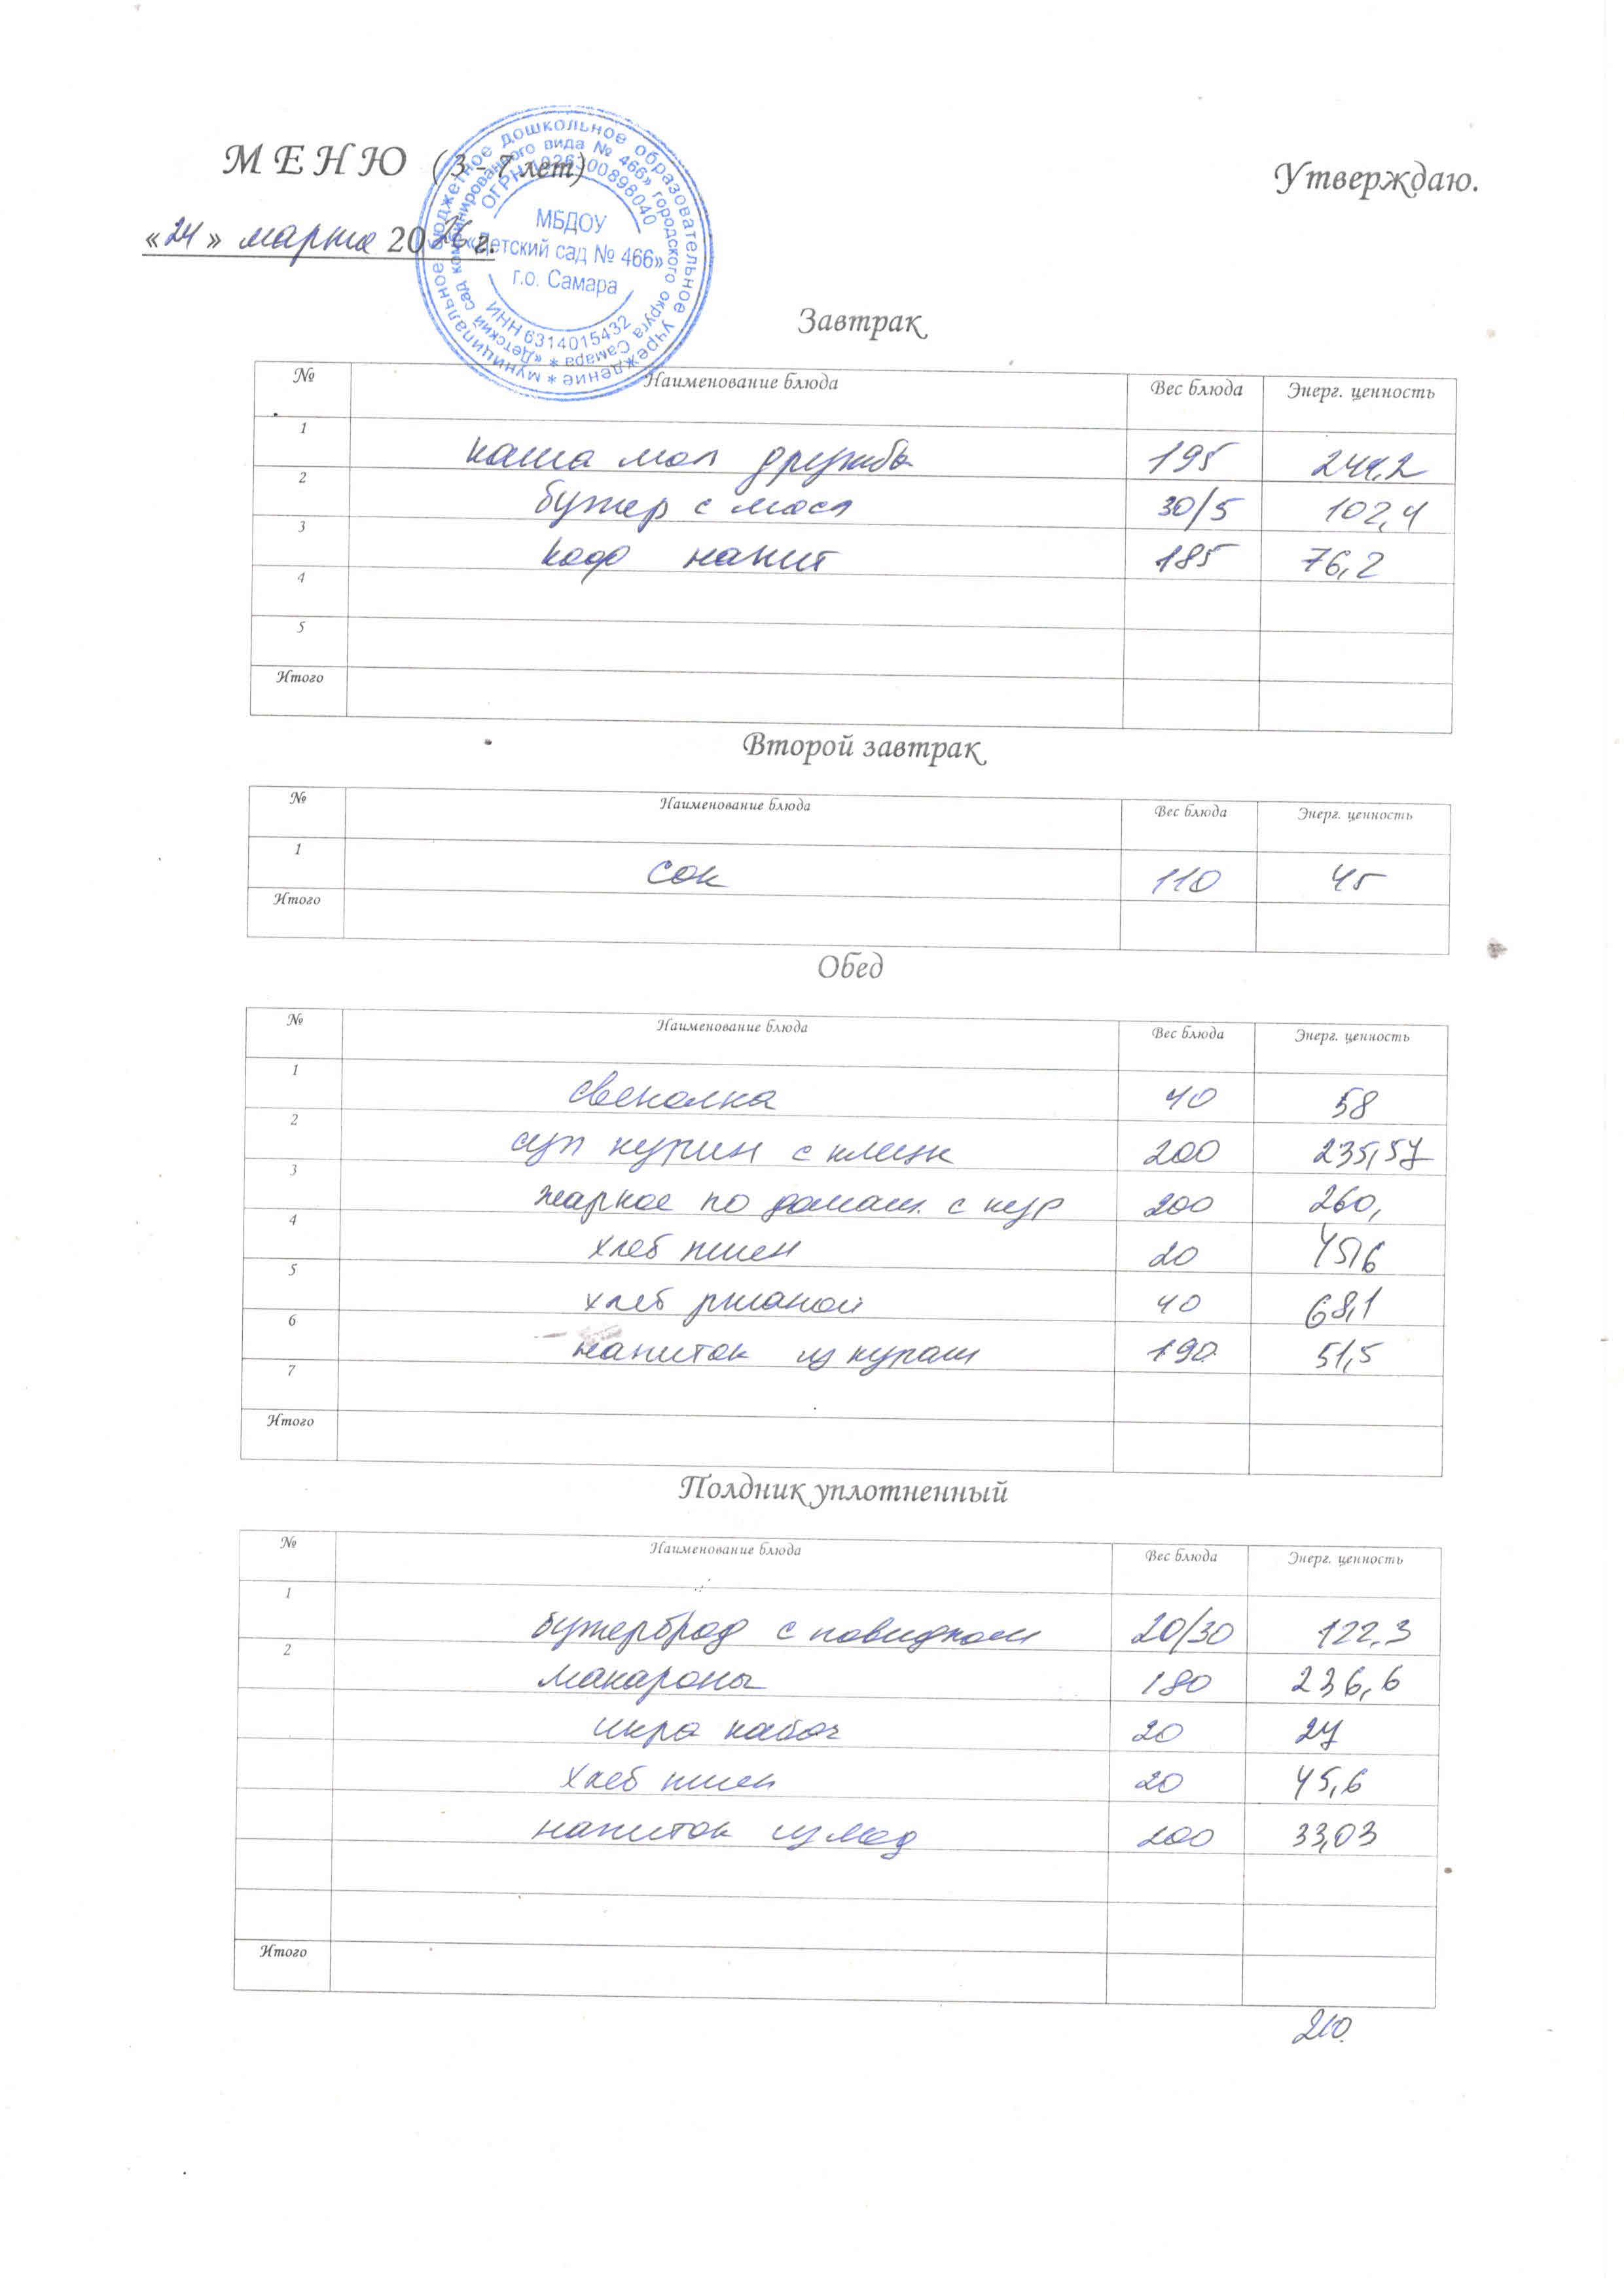 МЕНЮ (3 - 7 лет)
Утверждаю.
«24» марта 2026 г.
муниципальное бюджетное дошкольное образовательное учреждение *
«Детский сад комбинированного вида № 466» городского округа Самара *
ОГРН 1026300898040
МБДОУ
«Детский сад № 466»
г.о. Самара
ИНН 6314015432
Завтрак
№ Наименование блюда Вес блюда Энерг. ценность
1 каша мол дружба 195 244,2
2 бутер с масл 30/5 102,4
3 кофе напит 185 76,2
4
5
Итого
Второй завтрак
№ Наименование блюда Вес блюда Энерг. ценность
1 сок 110 45
Итого
Обед
№ Наименование блюда Вес блюда Энерг. ценность
1 свеколка 40 58
2 суп курин с клецк 200 235,57
3 жаркое по домаш. с кур 200 260,
4 хлеб пшен 20 45,6
5 хлеб ржаной 40 68,1
6 напиток из кураги 190 51,5
7
Итого
Полдник уплотненный
№ Наименование блюда Вес блюда Энерг. ценность
1 бутерброд с повидлом 20/30 122,3
2 макароны 180 236,6
икра кабач 20 27
хлеб пшен 20 45,6
напиток из 200 33,03
Итого
210.